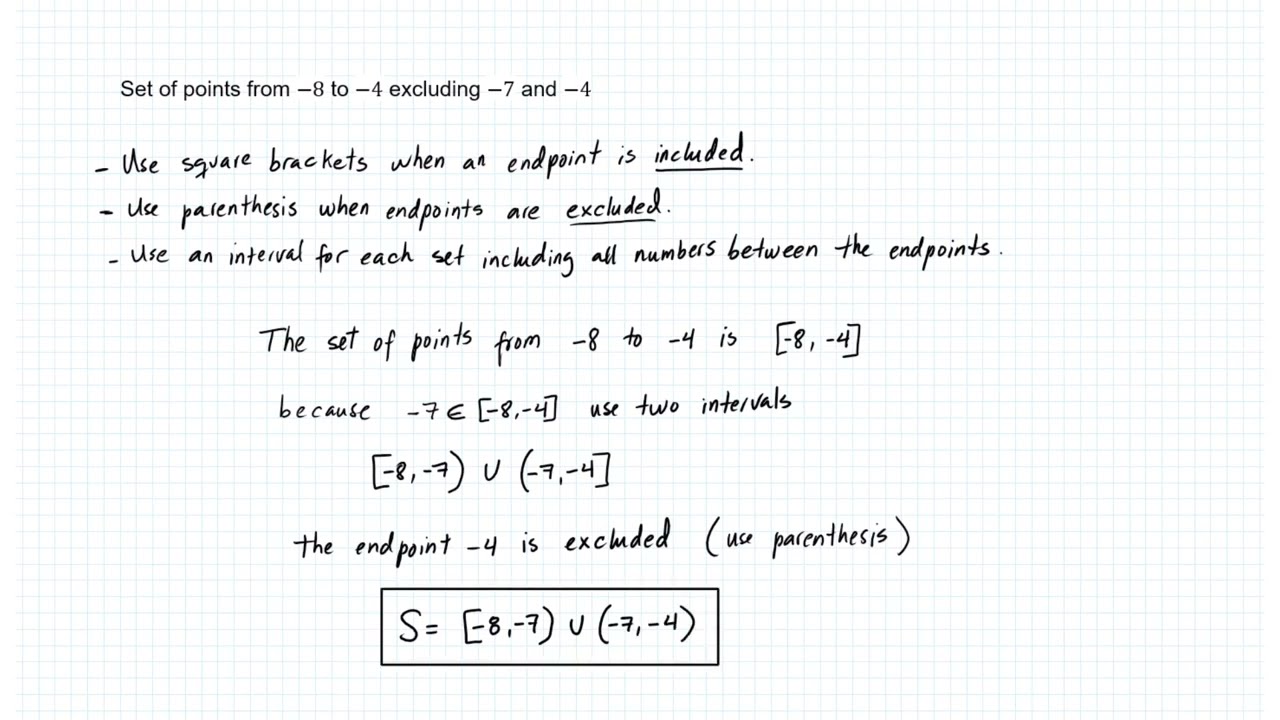 Set of points from −8 to −4 excluding −7 and −4
- Use square brackets when an endpoint is included.
- Use parenthesis when endpoints are excluded.
- Use an interval for each set including all numbers between the endpoints.
The set of points from -8 to -4 is [-8, -4]
because -7 ∈ [-8,-4] use two intervals
[-8,-7) ∪ (-7,-4]
the endpoint -4 is excluded (use parenthesis)
S= [-8,-7) ∪ (-7,-4)